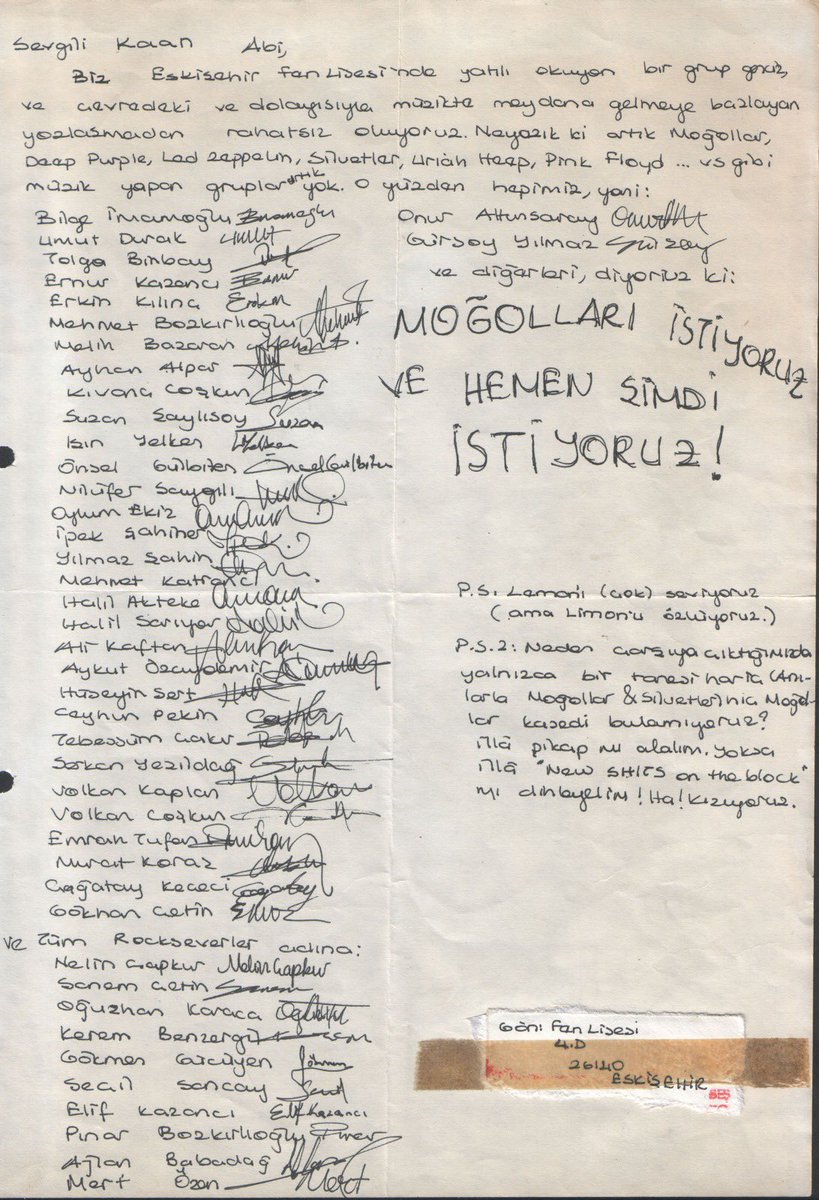 Sevgili Kaan Abi,
Biz Eskişehir Fen Lisesi'nde yatılı okuyan bir grup genciz,
ve çevredeki ve dolayısıyla müzikte meydana gelmeye başlayan
yozlaşmadan rahatsız oluyoruz. Neyazık ki artık Moğollar,
Deep Purple, Led Zeppelin, Silüetler, Uriah Heep, Pink Floyd ... vs gibi
müzik yapan gruplar artık yok. O yüzden hepimiz, yani:
Bilge İmamoğlu
Umut Durak
Tolga Binbay
Ernur Kazancı
Erkin Kılınç
Mehmet Bozkırlıoğlu
Melih Başaran
Ayhan Alpar
Kıvanç Coşkun
Suzan Saylısoy Suzan
Işın Yelken
Önsel Gülbiten Önsel Gülbiten
Nilüfer Saygılı
Oylum Ekiz
İpek Şahiner
Yılmaz Şahin
Mehmet Katrancı
Halil Akteke
Halil Sarıyar
Ali Kaftan
Aykut Özaydemir
Hüseyin Sert
Ceyhun Pekin
Tebessüm Çakır
Serkan Yeşildağ
Volkan Kaplan Volkan
Volkan Coşkun
Emrah Tufan
Murat Koraz
Çağatay Kececi Çağatay
Gökhan Çetin
Onur Altınsaray
Gürsoy Yılmaz Gürsoy
ve diğerleri, diyoruz ki:
MOĞOLLARI İSTİYORUZ
VE HEMEN ŞİMDİ
İSTİYORUZ!
P.S: Lemon'ı (çok) seviyoruz
(ama Limon'u özlüyoruz.)
P.S.2: Neden çarşıya çıktığımızda
yalnızca bir tanesi hariç (Anı-
larla Moğollar & Silüetler)in Moğol-
lar kasedi bulamıyoruz?
İllâ pikap mı alalım. Yoksa
illâ "New SHITS on the block"
mı dinleyelim! Ha! Kızıyoruz.
ve Tüm Rockseverler adına:
Nelin Çapkur Nelin Çapkur
Sanem Çetin Sanem
Oğuzhan Karaca
Kerem Benzergil
Gökmen
Seçil Sancay
Elif Kazancı Elif Kazancı
Pınar Bozkırlıoğlu Pınar
Babadağ
Mert Özen Mert
Gön: Fen Lisesi
4.D
26140
ESKİŞEHİR